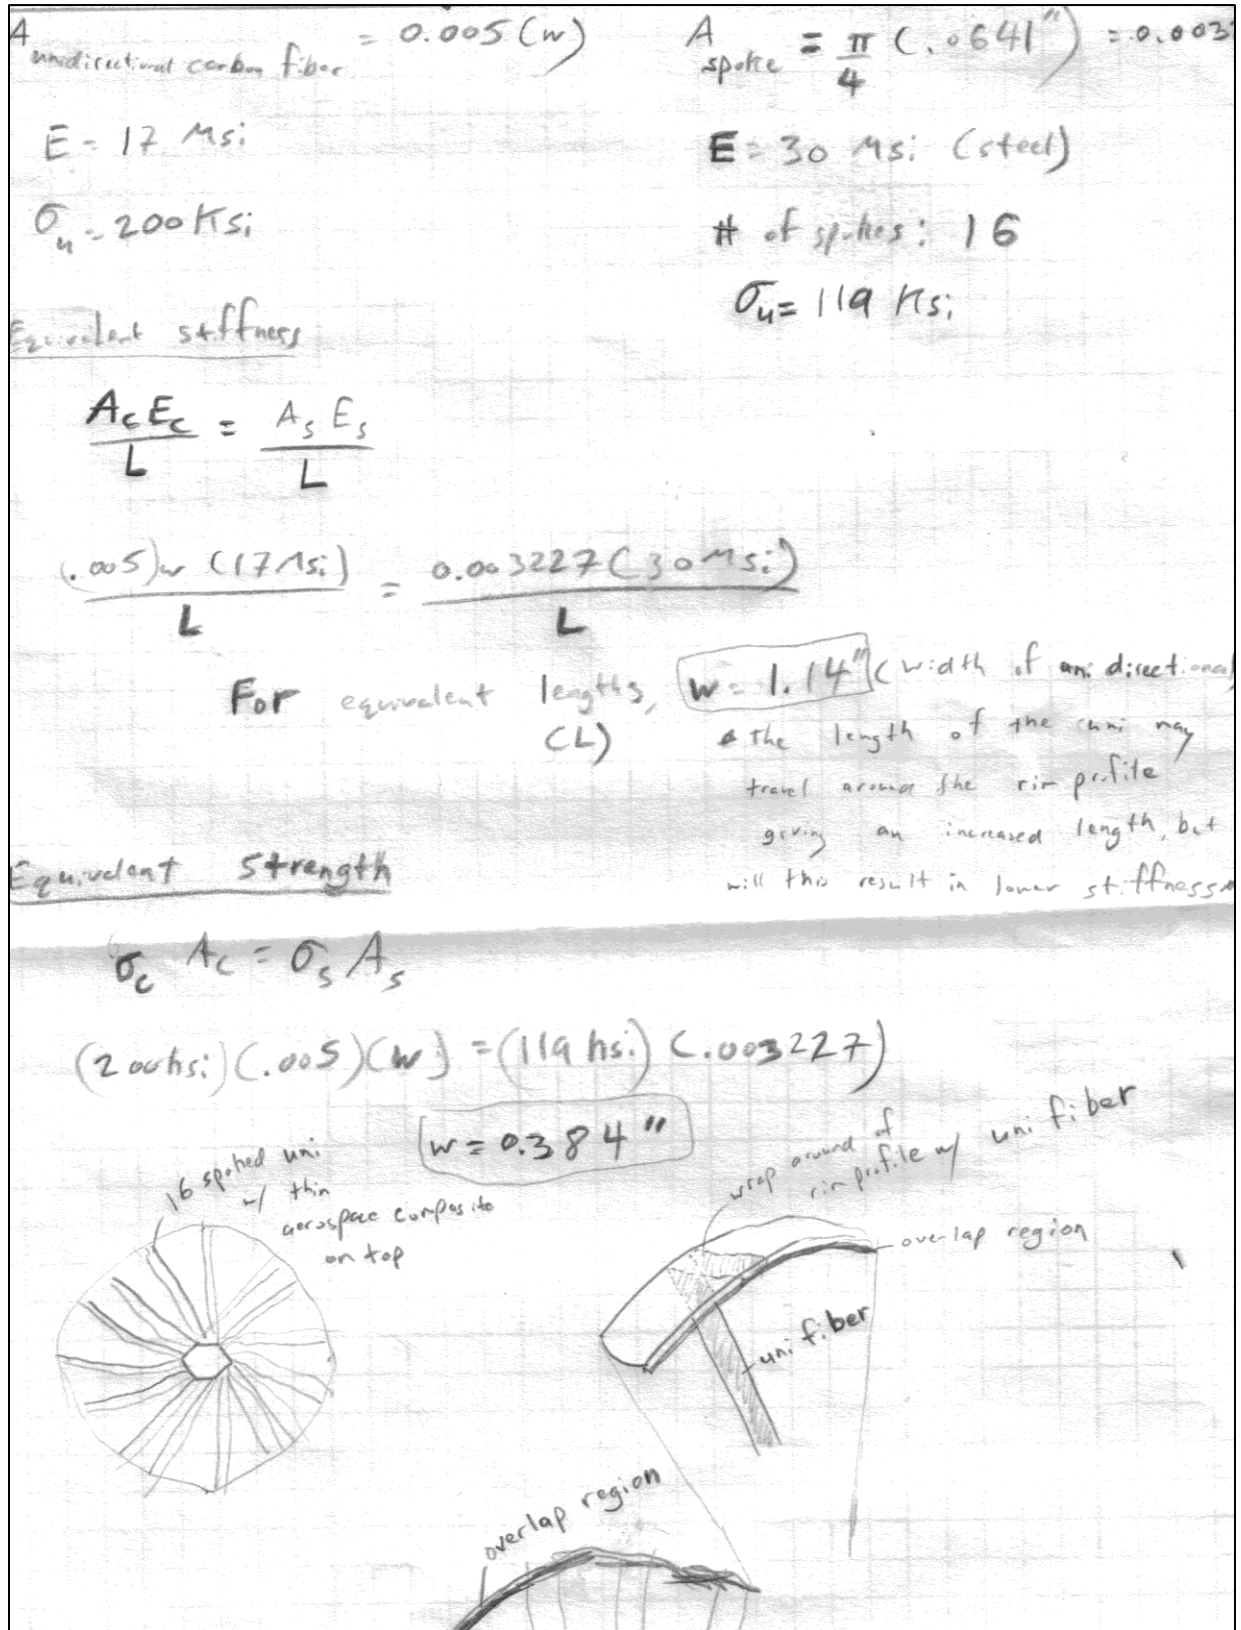 A unidirectional carbon fiber = 0.005 (w)
A spoke = π/4 (.0641") = 0.003
E = 17 Msi
E = 30 Msi (steel)
σu = 200 Ksi
# of spokes: 16
σu = 119 Ksi
Equivalent stiffness
AcEc/L = AsEs/L
(.005)w (17Msi)/L = 0.003227(30Msi)/L
For equivalent lengths, (L)
w = 1.14" (width of uni directional
the length of the uni may
travel around the rim profile
giving an increased length, but
will this result in lower stiffness
Equivalent Strength
σc Ac = σs As
(200ksi)(.005)(w) = (119 ksi) (.003227)
w = 0.384"
16 spoked uni
w/ thin
aerospace composite
on top
wrap around of
rim profile w/ uni fiber
overlap region
uni fiber
overlap region